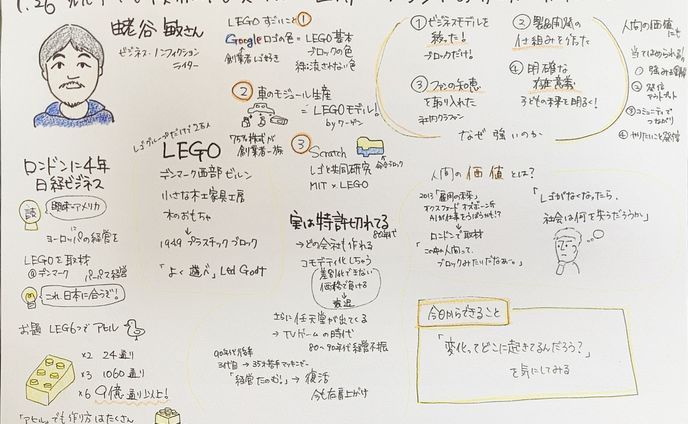 1.26
蛯谷 敏さん
ビジネス・ノンフィクション
ライター
ロンドンに4年
日経ビジネス
読
関東=アメリカ
ヨーロッパの経営を
LEGOを取材
@デンマーク
これ、日本に合うぞ!
お題 LEG6つで アヒル
×2 24通り
×3 1060通り
×6 9億通り以上!
「アヒル」でも作り方はたくさん
LEGOすごいこと①
Googleロゴの色=LEGO基本
ブロックの色
創業者レゴ好き
② 車のモジュール生産
=LEGOモデル!
by ワーゲン
75%株式が
創業者一族
③ Scratch
レゴと共同研究
MIT × LEGO
LEGO
デンマーク西部ビルン
小さな木工家具工房
木のおもちゃ
1949 プラスチックブロック
「よく遊べ」Led Godt
実は特許切れてる
80年代
→どの会社も作れる
コモディティ化しちゃう
差別化できない
価格で負ける
さらに任天堂が出てくる
→TVゲームの時代
80〜90年代経営不振
90年代後半
3代目→35才若手マッキンゼー
「経営たのむ!」→復活
今も右肩上がり
①ビジネスモデルを
絞った!
ブロックだけ!
②製品開発の
仕組みを作った
③ファンの知恵
を取り入れた
④明確な
存在意義
子どもの未来を明るく!
なぜ強いのか
人間の価値
にも
当てはめられる!
①強みを理解
②発信
アウトプット
③コミュニティで
つながり
④やりたいこと発信
人間の価値とは?
2013「雇用の未来」
オックスフォード オズボーン氏
AIが仕事をうばうかも!?
→ロンドンで取材
ブロックみたいだなぁ〜。
「レゴがなくなったら、
社会は何を失うだろうか」
今日からできること
「変化ってどこに起きてるんだろう?」
を気にしてみる